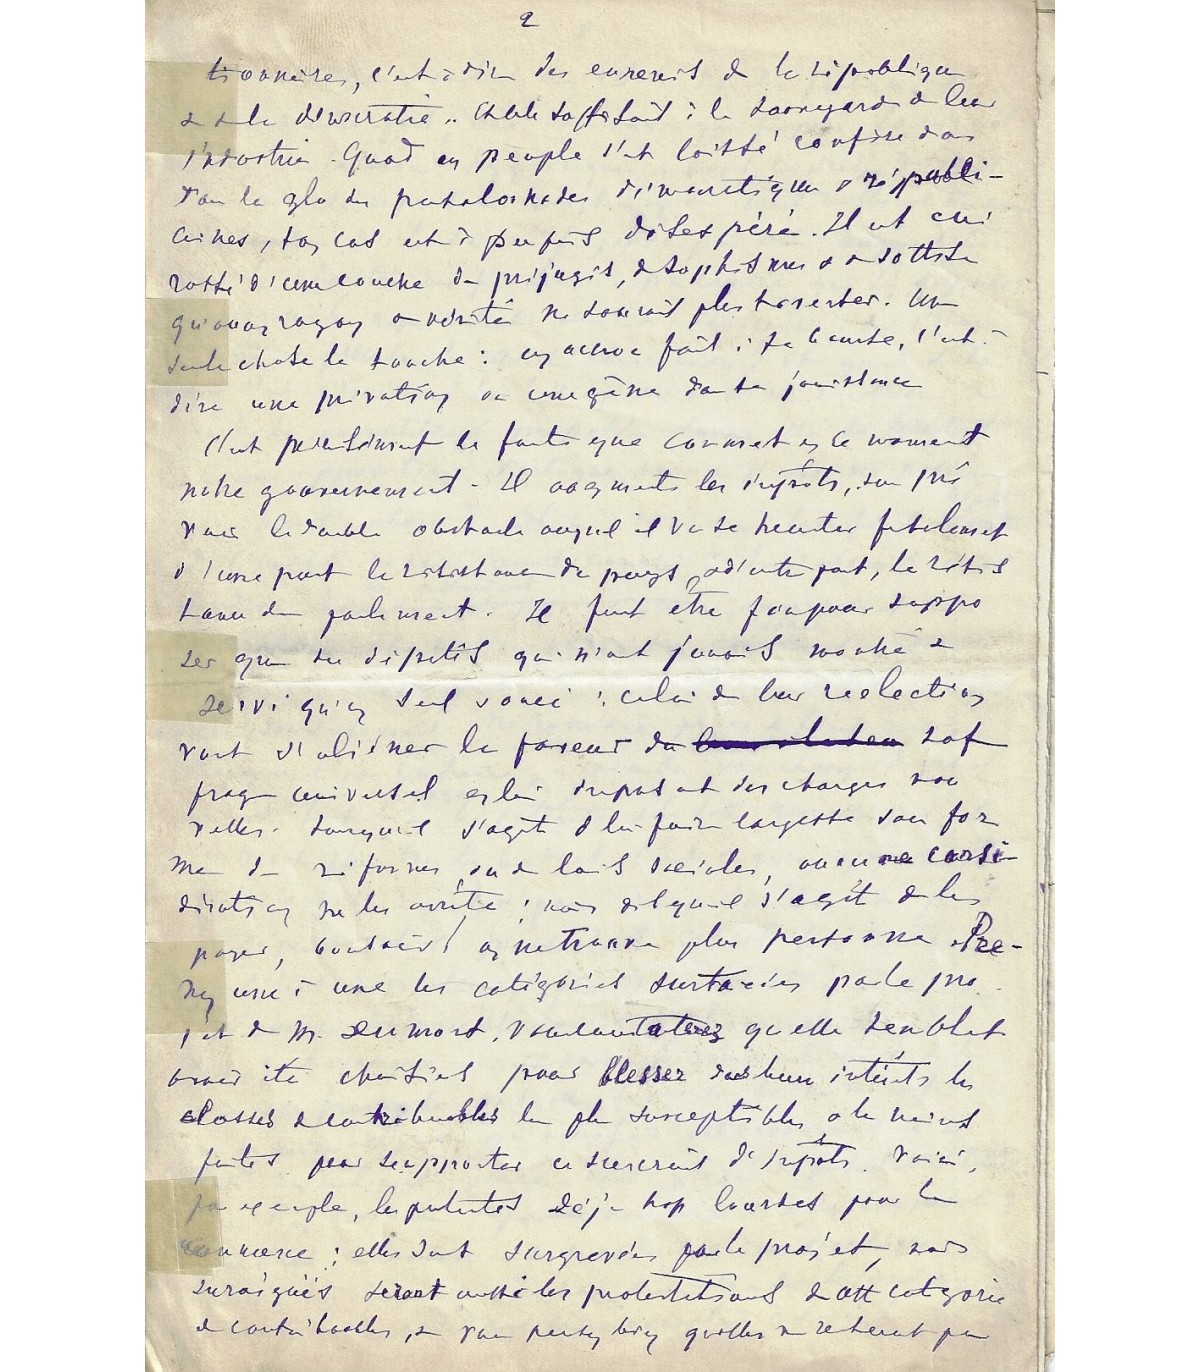 2
tionnaires, c'est à dire des ennemis de la république
et de la démocratie .. Cela suffisait à la sauvegarde de leur
industrie. Quand un peuple s'est laissé confire dans
dans la glu des pantalonnades démocratiques et républi-
caines, son cas est à peu près désespéré. Il est cui
rassé d'une couche de préjugés, de sophismes et de sottises
qu'aucun rayon de vérité ne saurait plus traverser. Une
seule chose le touche : un accroc fait à sa bourse, c'est à
dire une privation ou une gêne dans sa jouissance
C'est précisément la faute que commet en ce moment
notre gouvernement. Il augmente les impôts, sans pré
voir le double obstacle auquel il va se heurter fatalement
d'une part la résistance du pays, et d'autre part, la résis
tance du parlement. Il faut être fou pour suppo
ser que des députés qui n'ont jamais montré et
servi qu'un seul souci : celui de leur réélection
vont s'aliéner la faveur du suf
frage universel en lui imposant des charges nou
velles. Lorsqu'il s'agit de lui faire largesse sous for
me de réformes ou de lois sociales, aucune consi-
dération ne les arrête ; mais dès qu'il s'agit de les
payer, bonsoir ! on ne trouve plus personne. Pre-
nez une à une les catégories surtaxées par le pro
jet de M. Dumont, vous constaterez qu'elles semblent
avoir été choisies pour blesser dans leurs intérêts les
classes de contribuables les plus susceptibles et le moins
faites pour supporter un surcroît d'impôts. Voici,
par exemple, les patentes déjà trop lourdes pour le
commerce ; elles sont surgrevées par le projet, mais
suraigües seront aussi les protestations de cette catégorie
de contribuables, et vous pensez bien qu'elles ne resteront pas